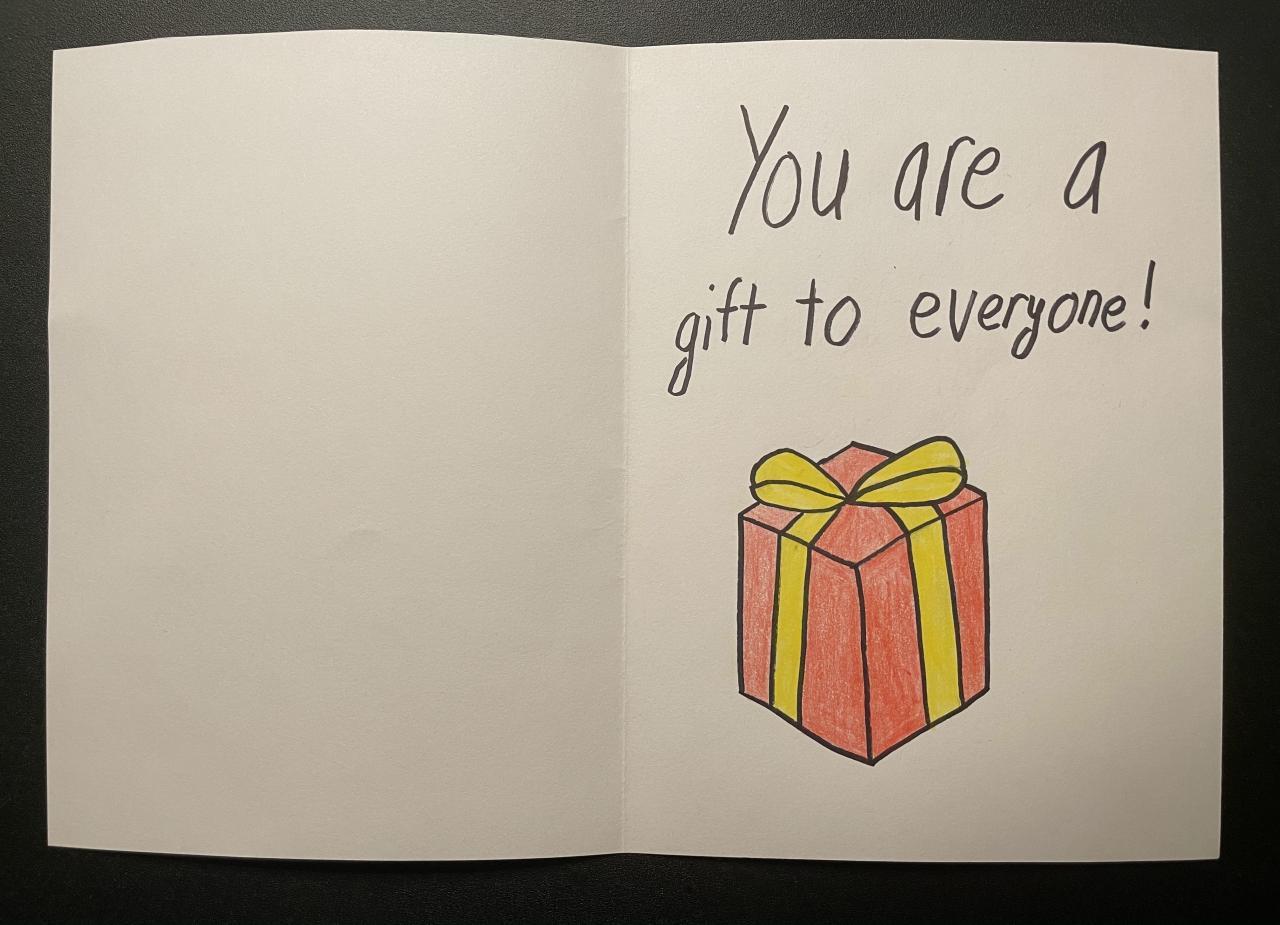 You are a
gift to everyone!